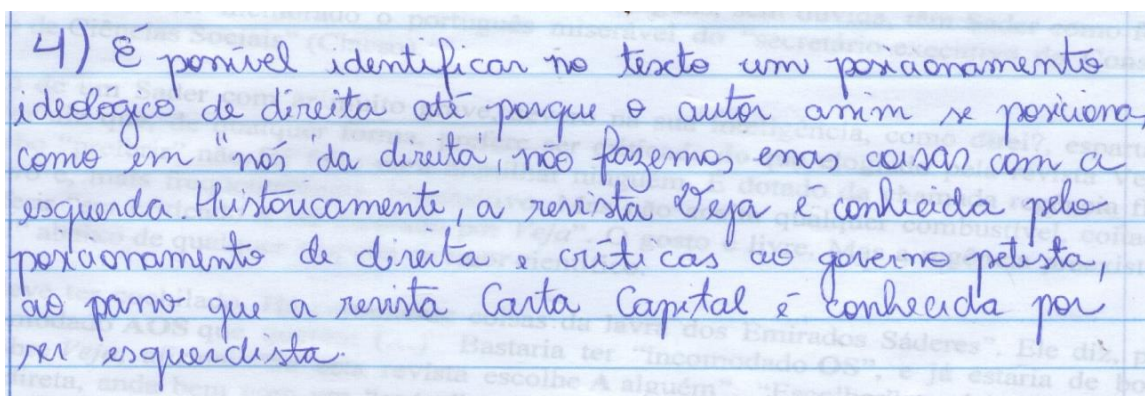 4) É possível identificar no texto um posicionamento
ideológico de direita até porque o autor assim se posiciona,
como em "nós da direita, não fazemos essas coisas com a
esquerda. Historicamente, a revista Veja é conhecida pelo
posicionamento de direita e críticas ao governo petista,
ao passo que a revista Carta Capital é conhecida por
ser esquerdista.